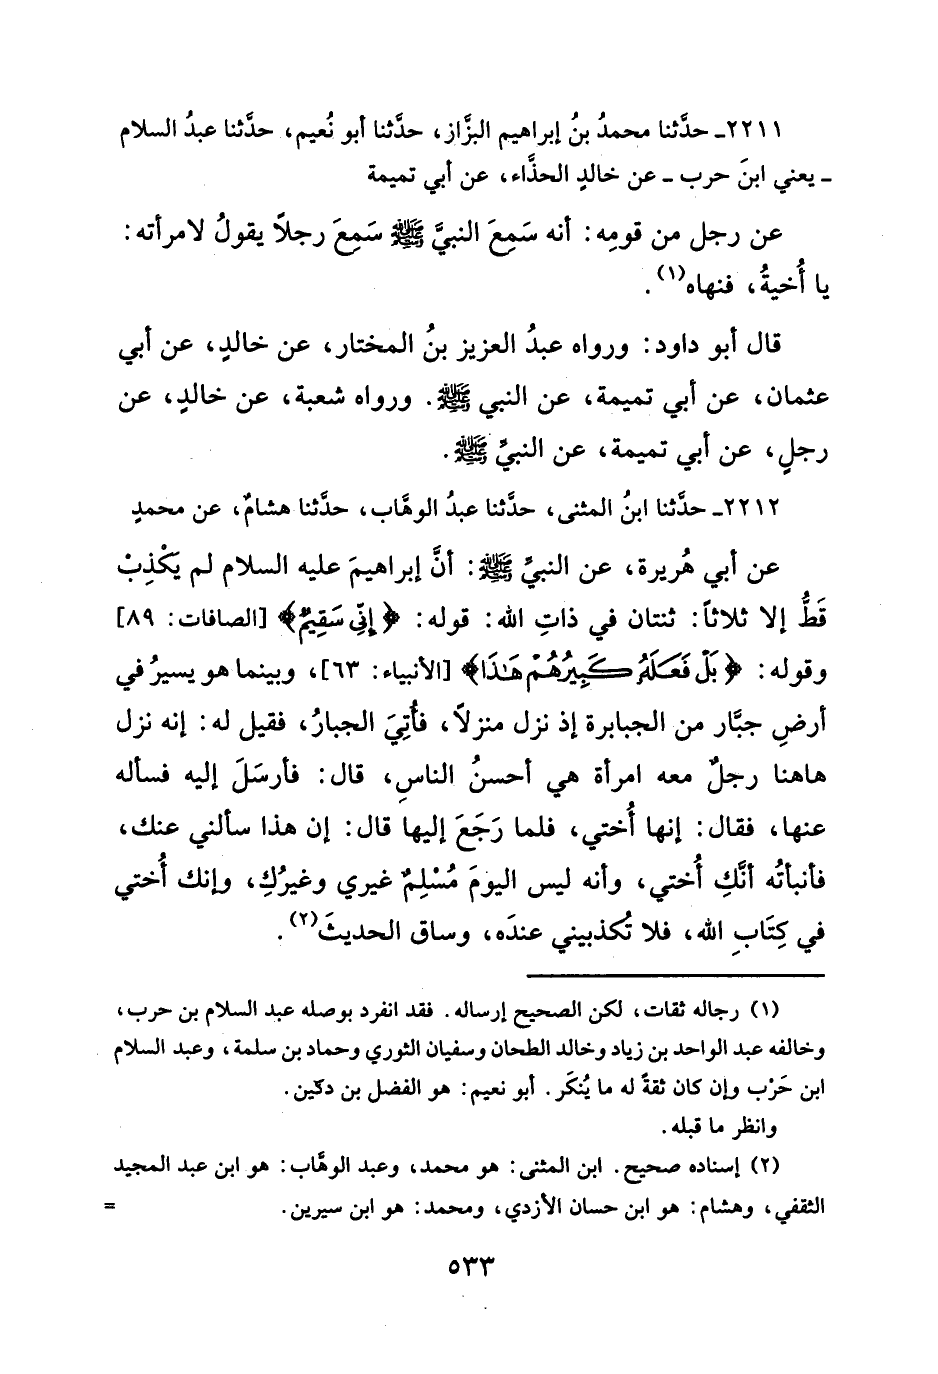 ٢٢١١ـ حدَّثنا محمدُ بنُ إبراهيم البزَّاز، حدَّثنا أبو نُعيم، حدَّثنا عبدُ السلام
ـ يعني ابنَ حرب ـ عن خالدٍ الحذَّاء، عن أبي تميمة
عن رجل من قومِه: أنه سَمِعَ النبيَّ ﷺ سَمِعَ رجلاً يقولُ لامرأته:
يا أُخيةُ، فنهاه(١).
قال أبو داود: ورواه عبدُ العزيز بنُ المختار، عن خالدٍ، عن أبي
عثمان، عن أبي تميمة، عن النبي ﷺ. ورواه شعبة، عن خالدٍ، عن
رجلٍ، عن أبي تميمة، عن النبيِّ ﷺ.
٢٢١٢ـ حدَّثنا ابنُ المثنى، حدَّثنا عبدُ الوهَّاب، حدَّثنا هشامٌ، عن محمدٍ
عن أبي هُريرة، عن النبيِّ ﷺ: أنَّ إبراهيمَ عليه السلام لم يَكْذِبْ
قَطُّ إلا ثلاثاً: ثنتان في ذاتِ الله: قوله: ﴿إِنِّي سَقِيمٌ﴾ [الصافات: ٨٩]
وقوله: ﴿بَلْ فَعَلَهُ كَبِيرُهُمْ هَٰذَا﴾ [الأنبياء: ٦٣]، وبينما هو يسيرُ في
أرضِ جبَّار من الجبابرة إذ نزل منزلاً، فأُتِيَ الجبارُ، فقيل له: إنه نزل
هاهنا رجلٌ معه امرأة هي أحسنُ الناسِ، قال: فأرسَلَ إليه فسأله
عنها، فقال: إنها أُختي، فلما رَجَعَ إليها قال: إن هذا سألني عنك،
فأنبأتُه أنَّكِ أُختي، وأنه ليس اليومَ مُسْلِمٌ غيري وغيرُكِ، وإنك أُختي
في كِتَابِ الله، فلا تُكذبيني عندَه، وساق الحديثَ(٢).
(١) رجاله ثقات، لكن الصحيح إرساله. فقد انفرد بوصله عبد السلام بن حرب،
وخالفه عبد الواحد بن زياد وخالد الطحان وسفيان الثوري وحماد بن سلمة، وعبد السلام
ابن حَرْب وإن كان ثقةً له ما يُنكَر. أبو نعيم: هو الفضل بن دكين.
وانظر ما قبله.
(٢) إسناده صحيح. ابن المثنى: هو محمد، وعبد الوهَّاب: هو ابن عبد المجيد
الثقفي، وهشام: هو ابن حسان الأزدي، ومحمد: هو ابن سيرين. =
٥٣٣